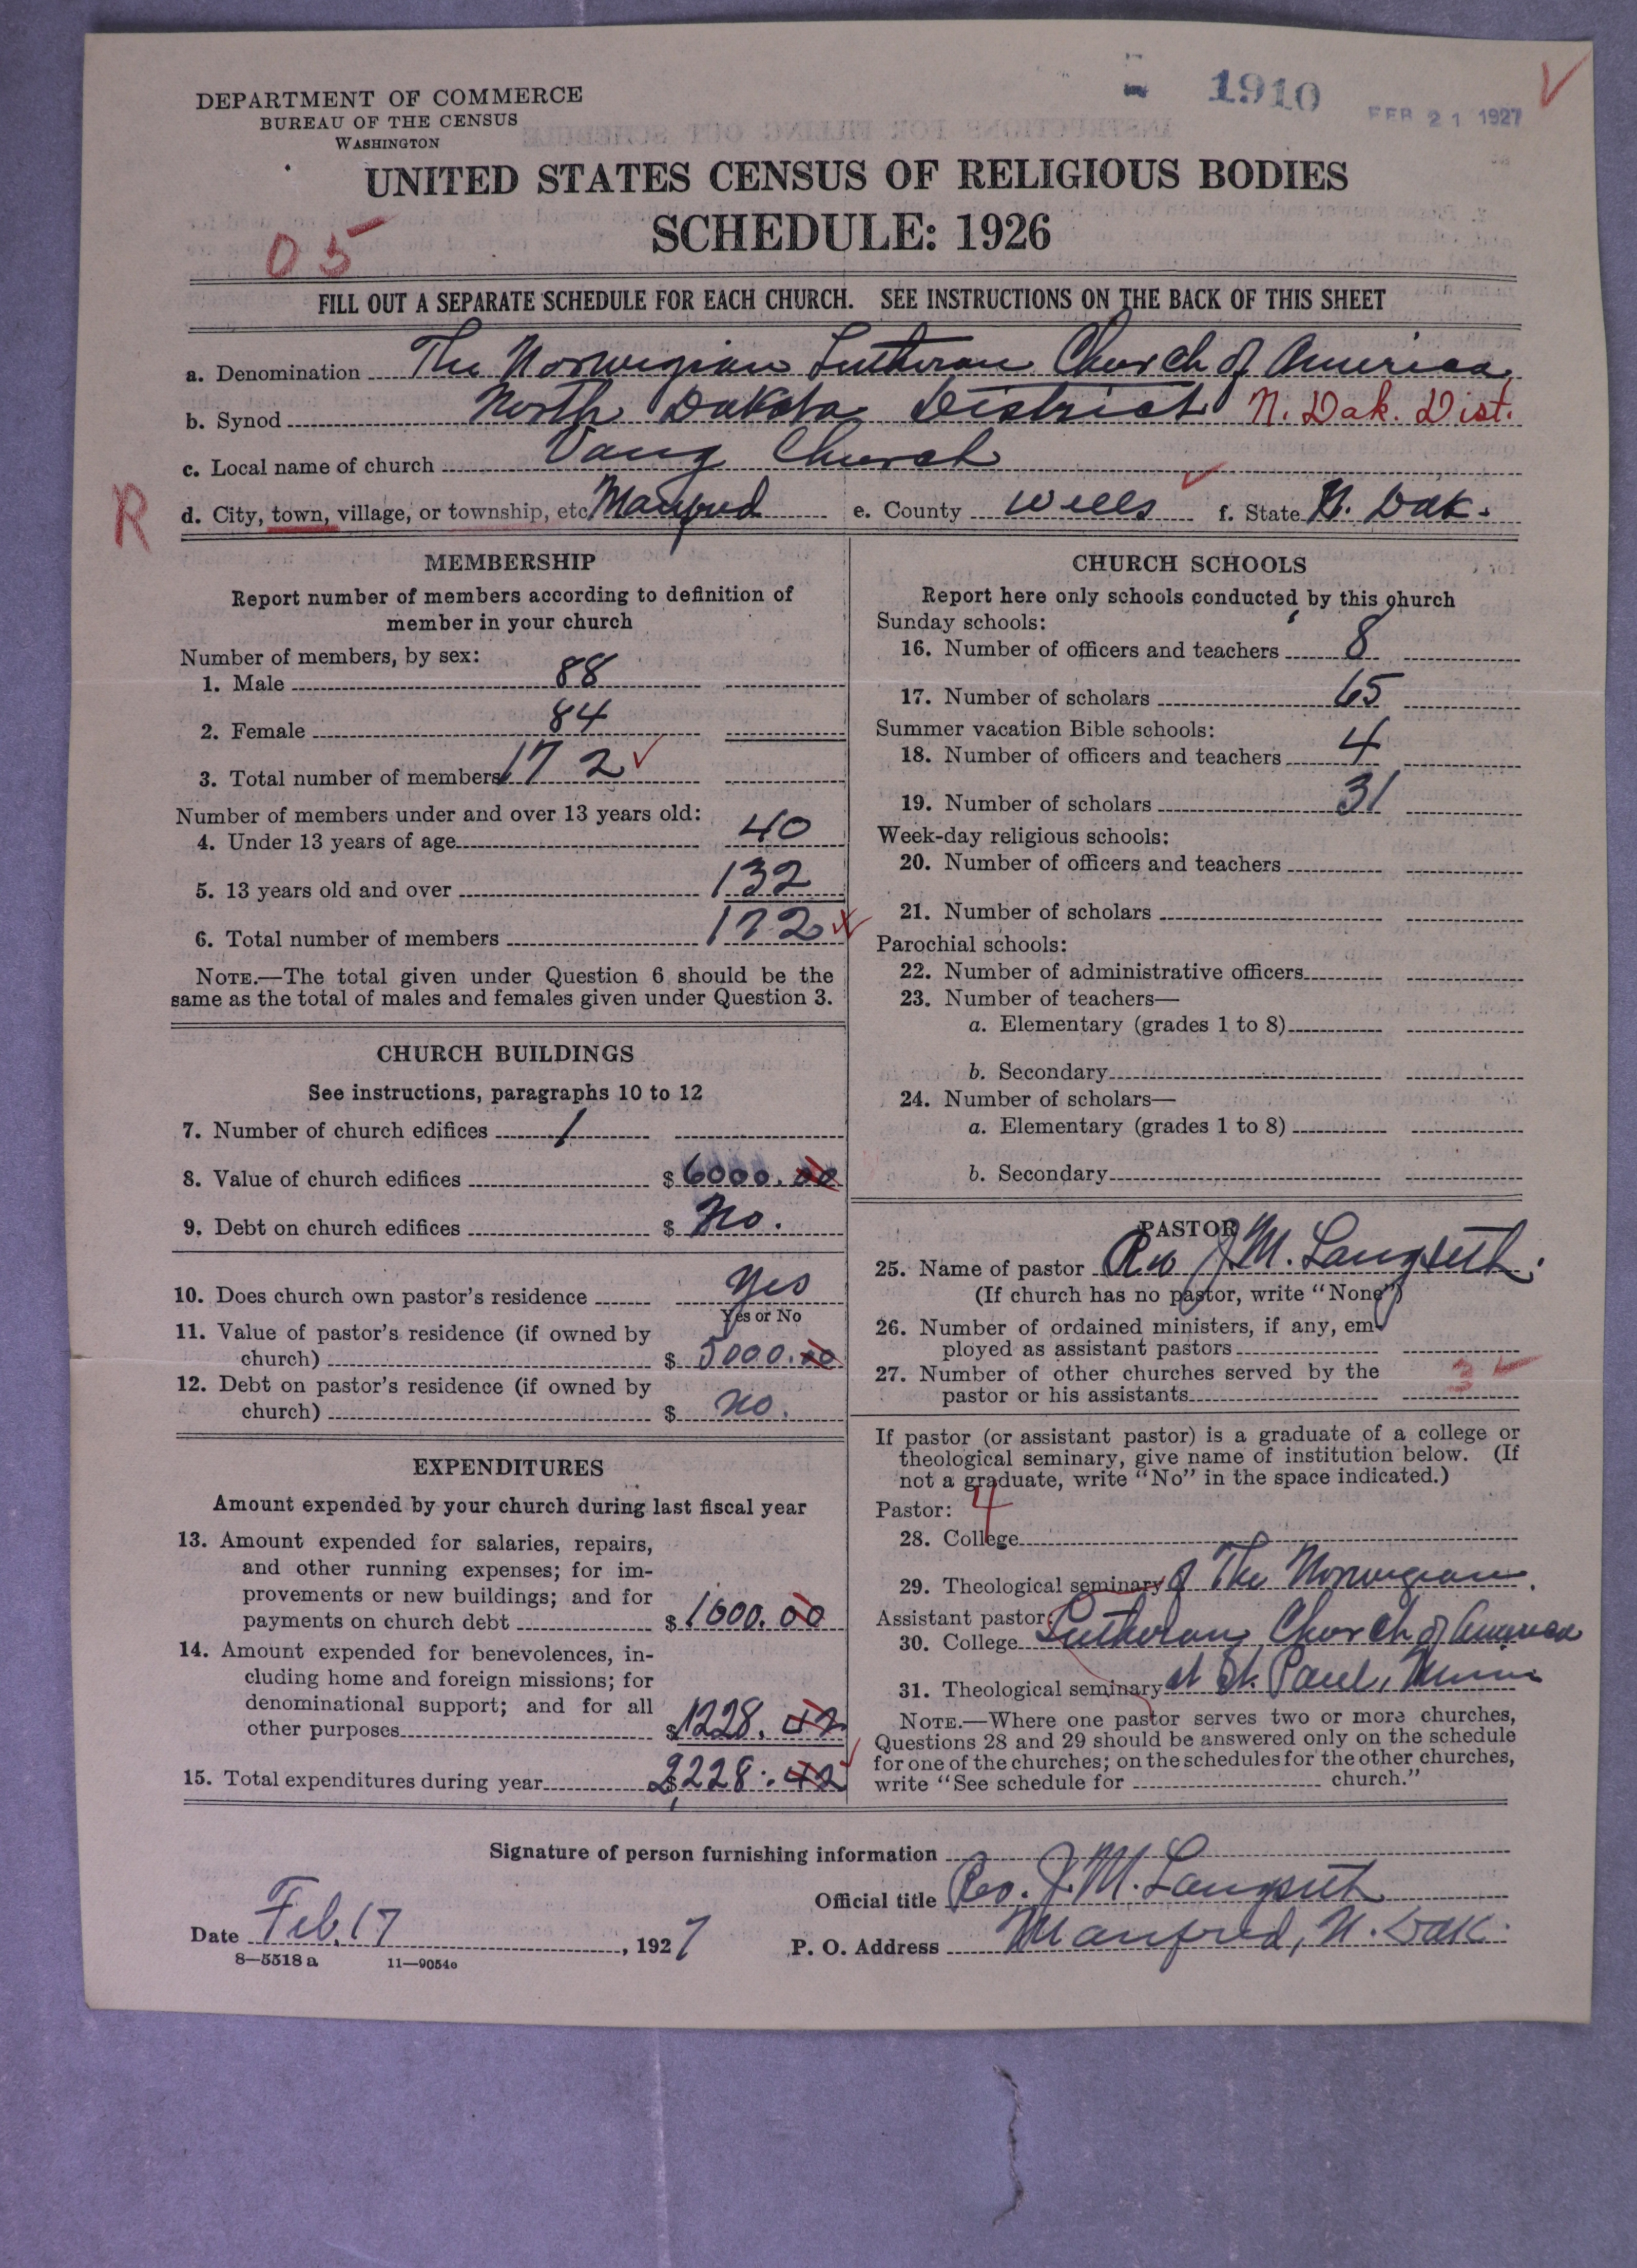 1910
FEB 21 1927
DEPARTMENT OF COMMERCE
BUREAU OF THE CENSUS
WASHINGTON
UNITED STATES CENSUS OF RELIGIOUS BODIES
SCHEDULE: 1926
05
FILL OUT A SEPARATE SCHEDULE FOR EACH CHURCH. SEE INSTRUCTIONS ON THE BACK OF THIS SHEET
a. Denomination The Norwegian Lutheran Church of America,
b. Synod North Dakota District N. Dak. Dist.
c. Local name of church Vang Church
R
d. City, town, village, or township, etc. Manfred e. County Wells f. State N. Dak.
MEMBERSHIP
Report number of members according to definition of
member in your church
Number of members, by sex:
1. Male 88
2. Female 84
3. Total number of members 172
Number of members under and over 13 years old:
4. Under 13 years of age 40
5. 13 years old and over 132
6. Total number of members 172
NOTE.—The total given under Question 6 should be the
same as the total of males and females given under Question 3.
CHURCH BUILDINGS
See instructions, paragraphs 10 to 12
7. Number of church edifices 1
8. Value of church edifices $ 6000.00
9. Debt on church edifices $ No.
10. Does church own pastor's residence Yes
Yes or No
11. Value of pastor's residence (if owned by
church) $ 5000.00
12. Debt on pastor's residence (if owned by
church) $ No.
EXPENDITURES
Amount expended by your church during last fiscal year
13. Amount expended for salaries, repairs,
and other running expenses; for im-
provements or new buildings; and for
payments on church debt $ 1000.00
14. Amount expended for benevolences, in-
cluding home and foreign missions; for
denominational support; and for all
other purposes $ 1228.42
15. Total expenditures during year $ 2,228.42
CHURCH SCHOOLS
Report here only schools conducted by this church
Sunday schools:
16. Number of officers and teachers 8
17. Number of scholars 65
Summer vacation Bible schools:
18. Number of officers and teachers 4
19. Number of scholars 31
Week-day religious schools:
20. Number of officers and teachers
21. Number of scholars
Parochial schools:
22. Number of administrative officers
23. Number of teachers—
a. Elementary (grades 1 to 8)
b. Secondary
24. Number of scholars—
a. Elementary (grades 1 to 8)
b. Secondary
PASTOR
25. Name of pastor Rev J. M. Langseth.
(If church has no pastor, write "None")
26. Number of ordained ministers, if any, em-
ployed as assistant pastors
27. Number of other churches served by the
pastor or his assistants 3
If pastor (or assistant pastor) is a graduate of a college or
theological seminary, give name of institution below. (If
not a graduate, write "No" in the space indicated.)
Pastor: 4
28. College
29. Theological seminary of The Norwegian
Assistant pastor:
30. College Lutheran Church of America
31. Theological seminary at St. Paul, Minn
NOTE.—Where one pastor serves two or more churches,
Questions 28 and 29 should be answered only on the schedule
for one of the churches; on the schedules for the other churches,
write "See schedule for church."
Signature of person furnishing information
Official title Rev. J. M. Langseth
Date Feb. 17, 1927 P. O. Address Manfred, N. Dak.
8—5518 a 11—9054a